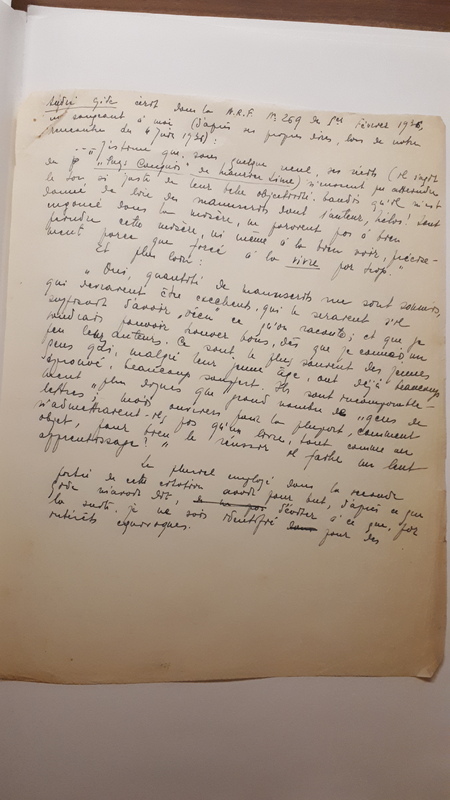 André Gide écrit dans la N.R.F. No 269 de 1er février 1936,
en songeant à moi (d'après ses propres dires, lors de notre
rencontre du 4 juin 1936):
"J'estime que, sans quelque recul, ses récits (il s'agit
du "Pays Conquis" de
le ton si juste de leur belle objectivité. Tandis qu'il m'est
donné de lire des manuscrits dont l'auteur, hélas! tout
engoncé dans la misère, ne parvient pas à bien
peindre cette misère, ni même à la bien voir, précisé-
ment parce que forcé à la vivre par trop."
Et plus loin:
"Oui, quantité de manuscrits me sont soumis,
qui devraient être excellents, qui le seraient s'il
suffisait d'avoir "vécu" ce qu'on raconte; et que je
voudrais pouvoir trouver bons, dès que je connais un
peu leurs auteurs. Ce sont, le plus souvent des jeunes
gens qui, malgré leur jeune âge, ont déjà beaucoup
éprouvé, beaucoup souffert. Ils sont incomparable-
ment "plus dignes que grand nombre de "gens de
lettres"; mais ouvriers pour la plupart, comment
n'admettraient-ils pas qu'un livre, tout comme un
objet, pour bien le réussir il faille un lent
apprentissage?"
Le pluriel employé dans la seconde
partie de cette citation avait pour but, d'après ce que
Gide m'avait dit, d'éviter à ce que, par
la suite, je ne sois identifié par des
esprits équivoques.